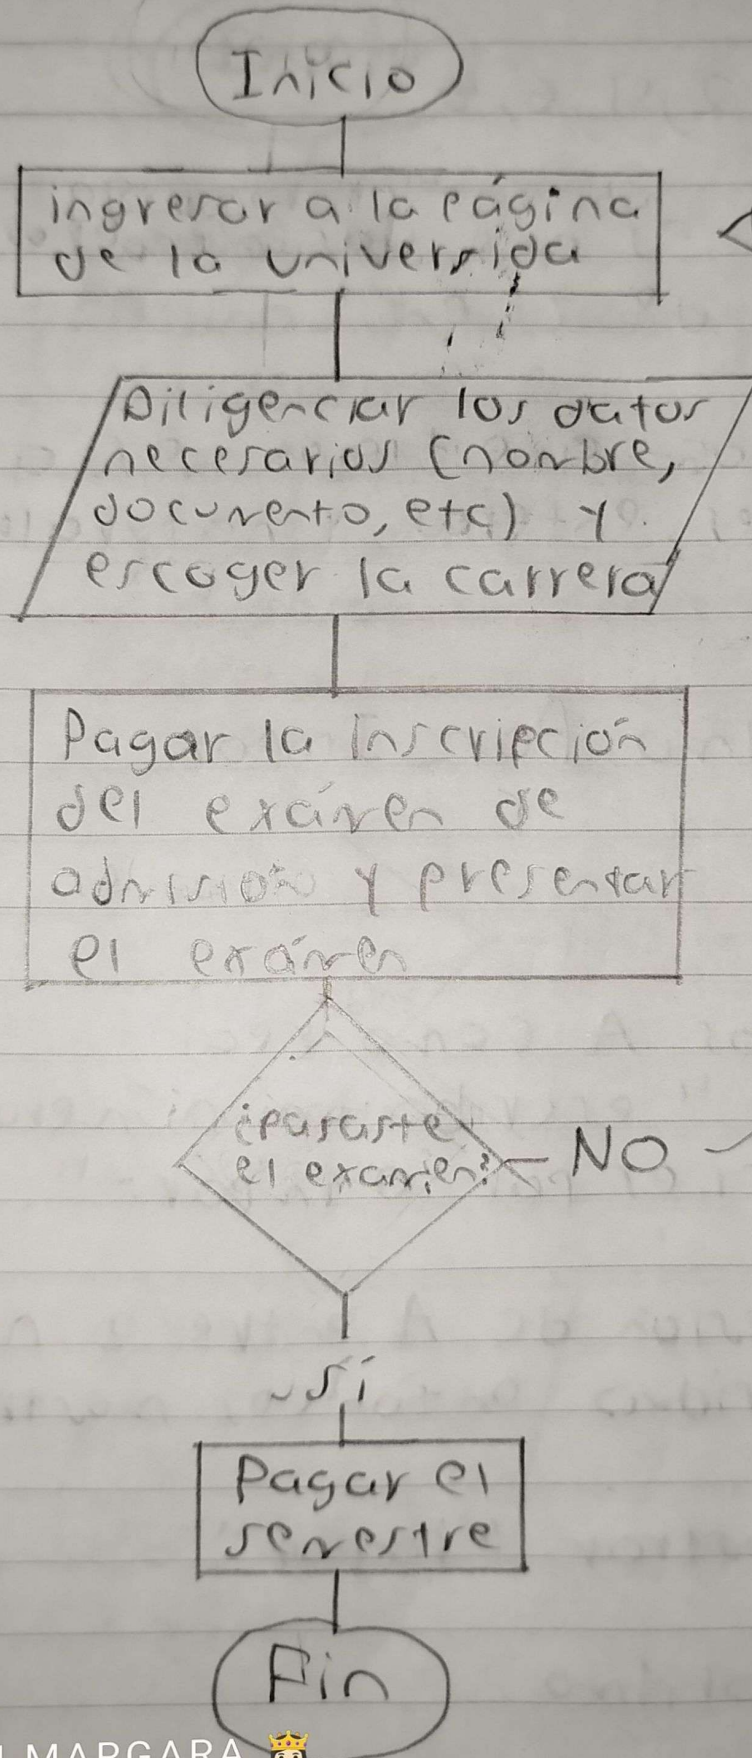 Inicio
ingresar a la página
de la universida
Diligenciar los datos
necesarios (nombre,
documento, etc) y
escoger la carrera
Pagar la inscripción
del exámen de
admisión y presentar
el exámen
¿pasaste
el examen?
NO
Si
Pagar el
semestre
Fin
MARGARA